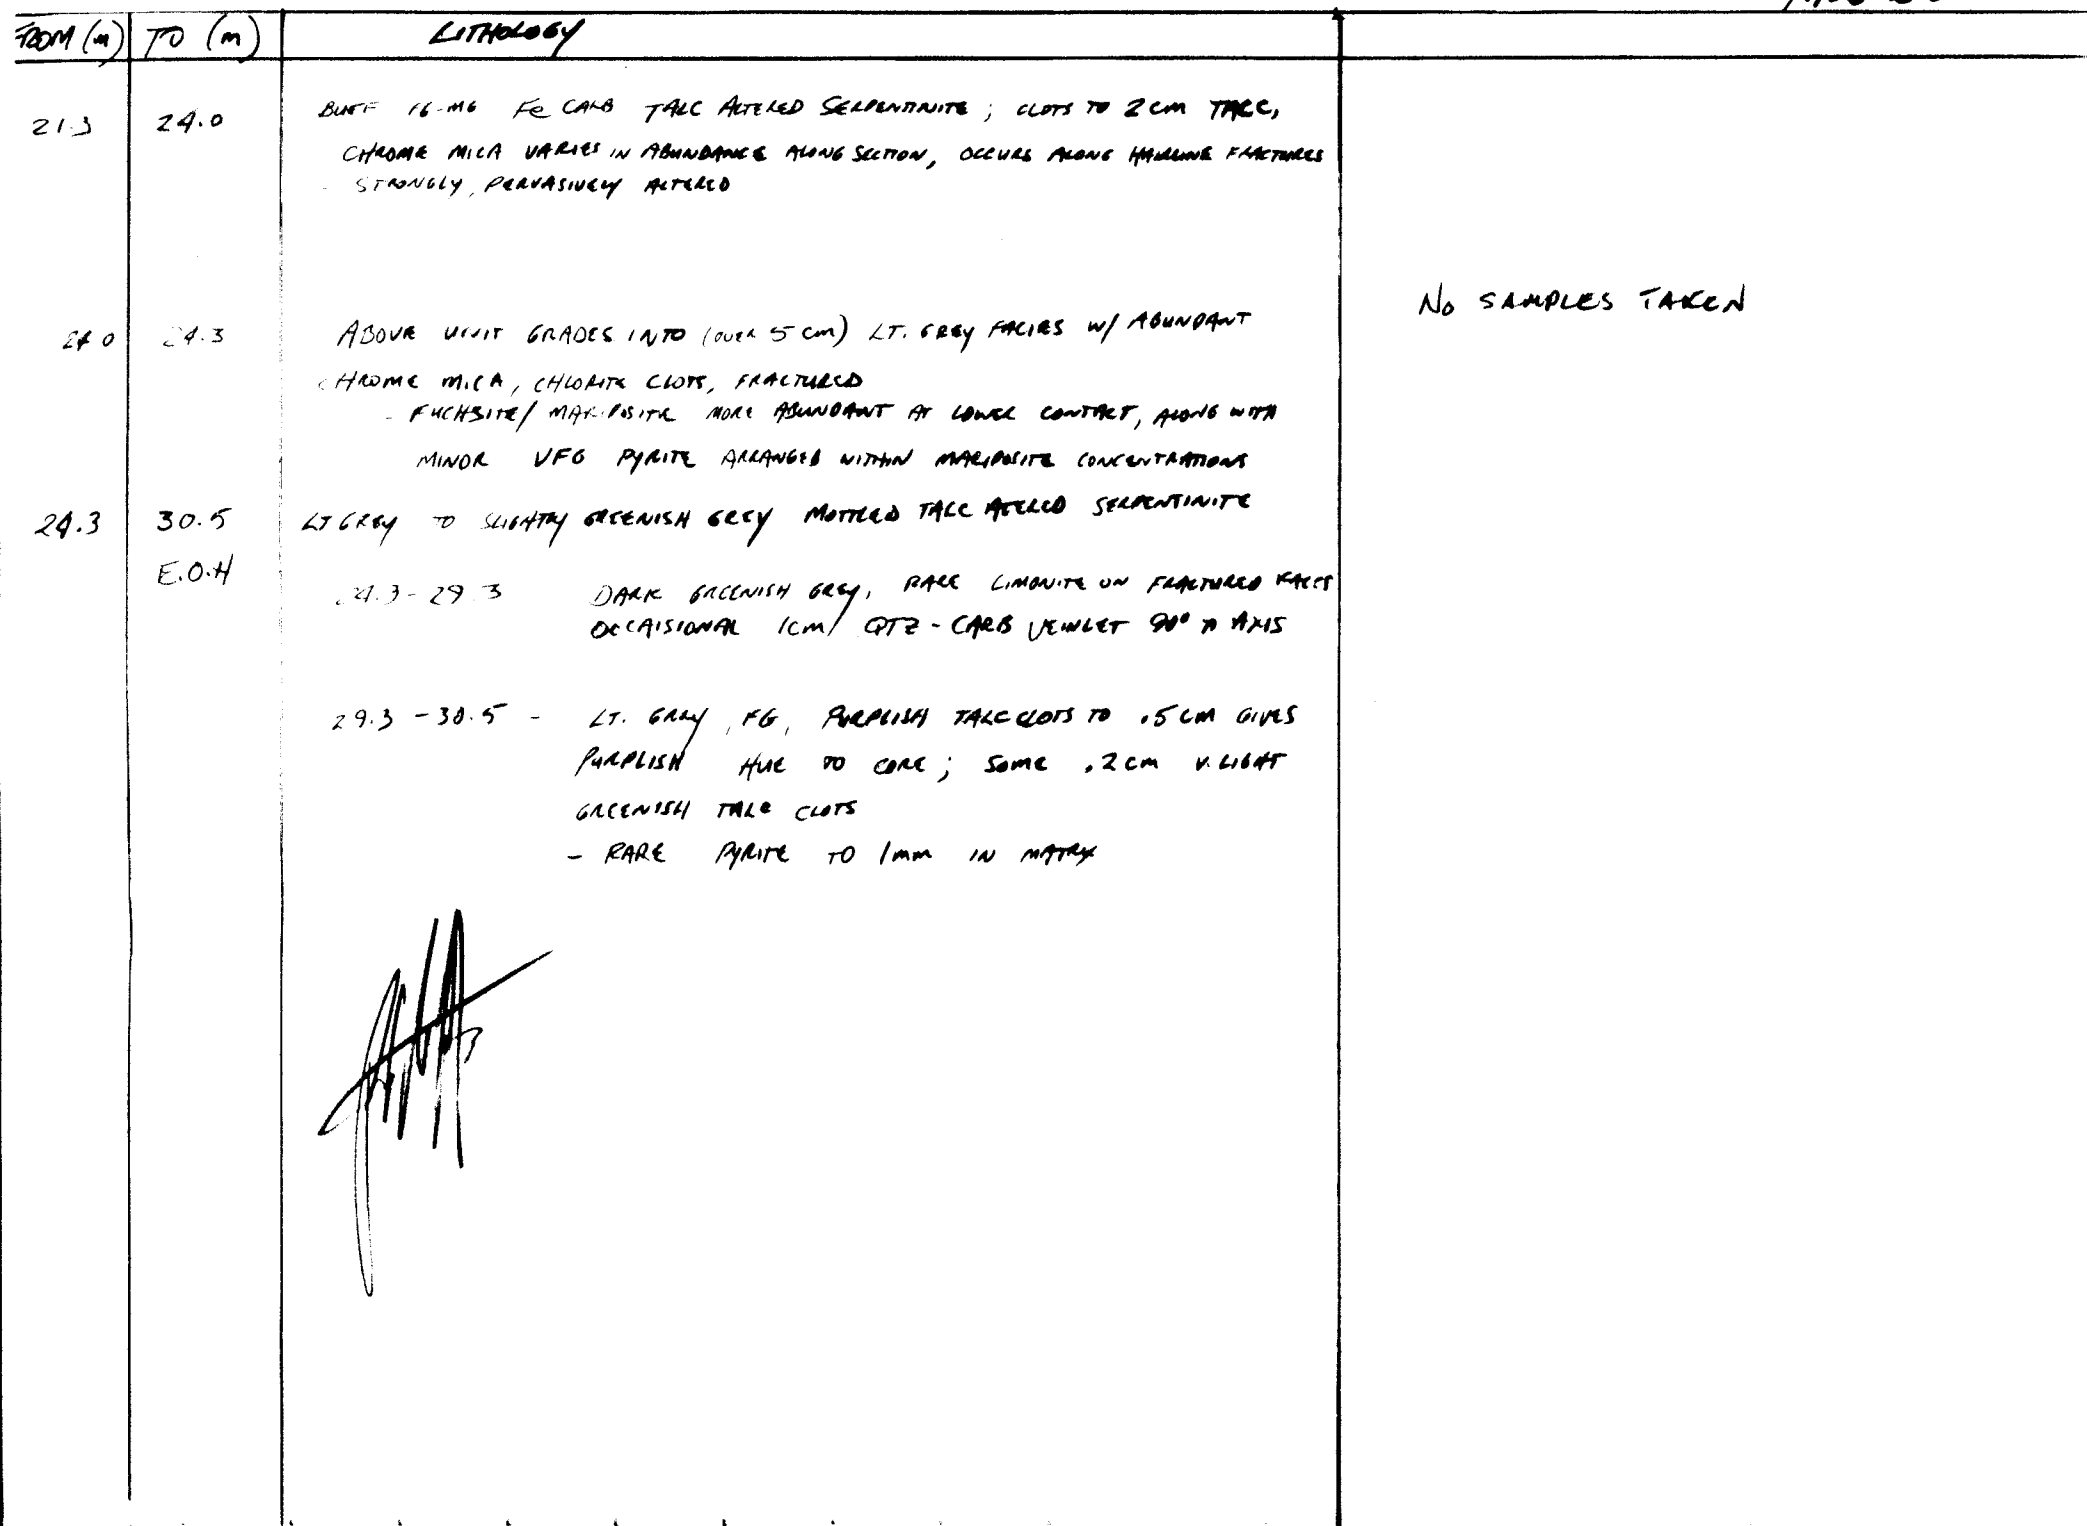 FROM (m) TO (m) LITHOLOGY
21.3 24.0 BUFF FG-MG Fe CARB TALC ALTERED SERPENTINITE ; CLOTS TO 2 cm TALC,
CHROME MICA VARIES IN ABUNDANCE ALONG SECTION, OCCURS ALONG HAIRLINE FRACTURES
- STRONGLY, PERVASIVELY ALTERED
No SAMPLES TAKEN
24.0 24.3 ABOVE UNIT GRADES INTO (over 5 cm) LT. GREY FACIES W/ ABUNDANT
CHROME MICA, CHLORITE CLOTS, FRACTURED
- FUCHSITE/ MARIPOSITE MORE ABUNDANT AT LOWER CONTACT, ALONG WITH
MINOR VFG PYRITE ARRANGED WITHIN MARIPOSITE CONCENTRATIONS
24.3 30.5 LT GREY TO SLIGHTLY GREENISH GREY MOTTLED TALC ALTERED SERPENTINITE
E.O.H
24.3 - 29.3 DARK GREENISH GREY, RARE LIMONITE ON FRACTURED FACES
OCCAISIONAL 1cm QTZ - CARB VEINLET 90° TO AXIS
29.3 - 30.5 - LT. GREY, FG, PURPLISH TALC CLOTS TO .5 cm GIVES
PURPLISH HUE TO CORE ; SOME .2 cm V. LIGHT
GREENISH TALC CLOTS
- RARE PYRITE TO 1mm IN MATRIX